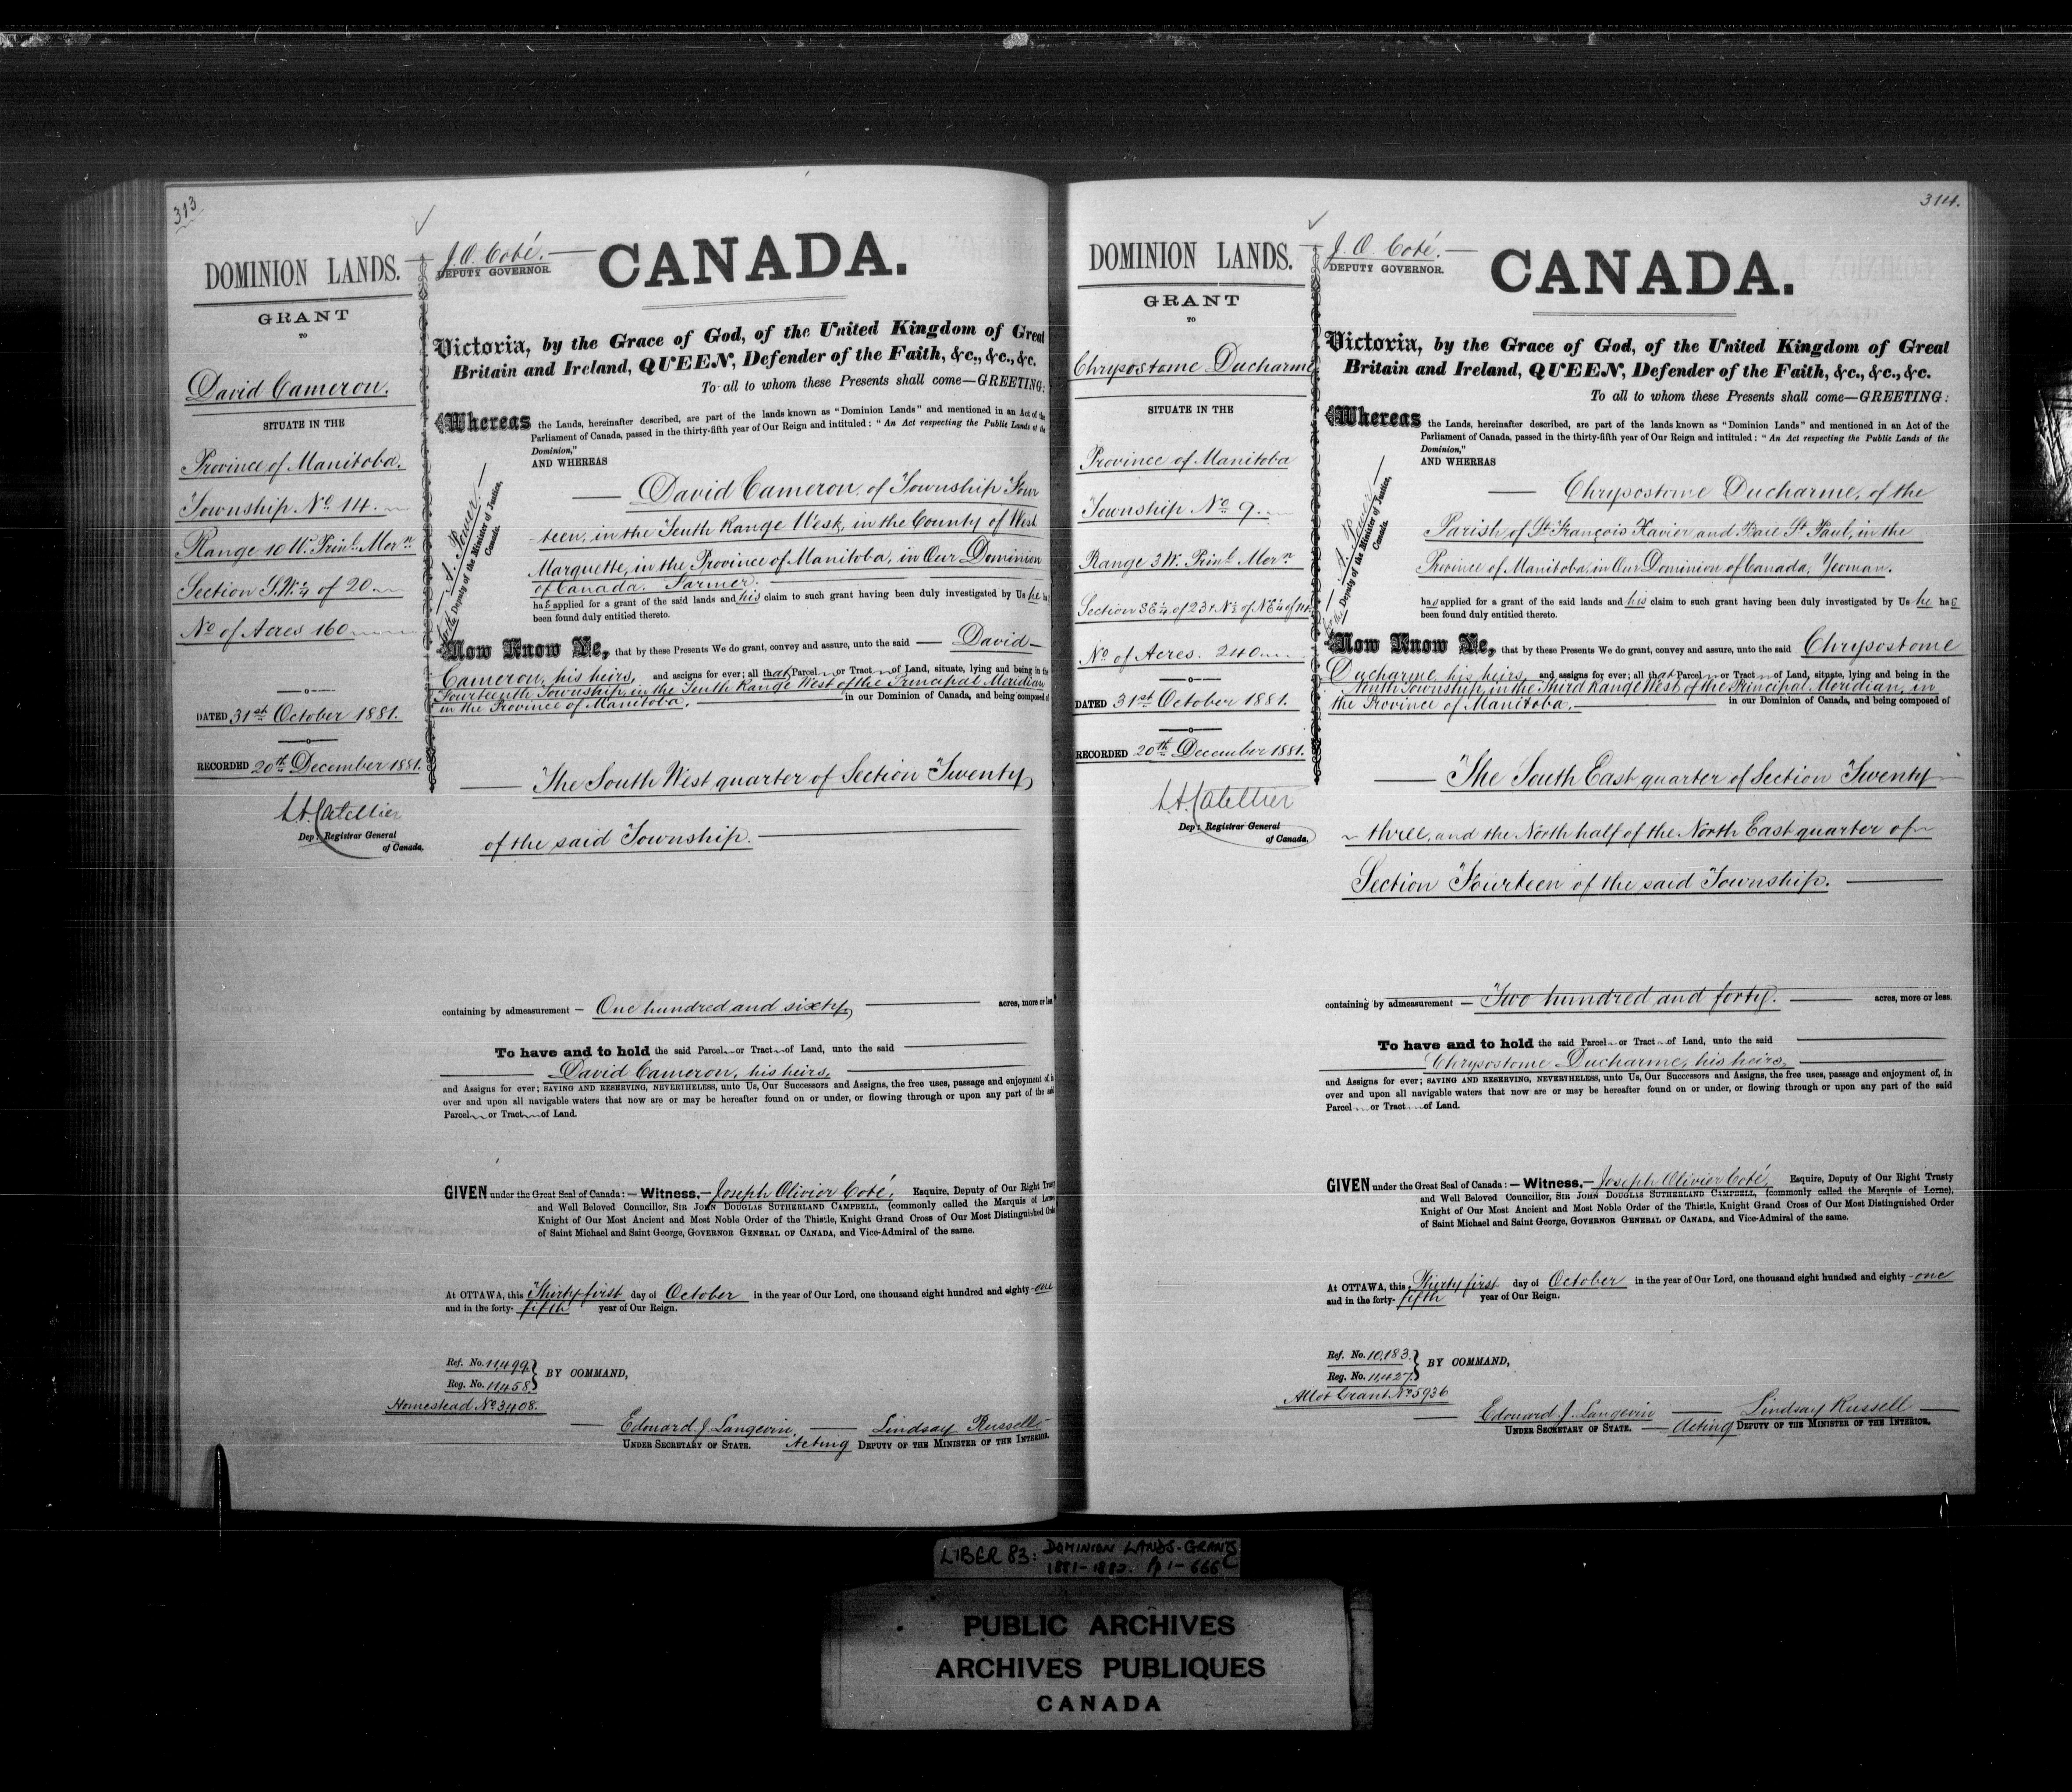 313
DOMINION LANDS.
GRANT
TO
David Cameron.
SITUATE IN THE
Province of Manitoba.
Township No 14.
Range 10 W. Prinl. Mern
Section S.W.¼ of 20
No of Acres 160
DATED 31st October 1881.
RECORDED 20th December 1881.
Dep: Registrar General
of Canada.
J.O. Coté.
DEPUTY GOVERNOR.
CANADA.
Victoria, by the Grace of God, of the United Kingdom of Great
Britain and Ireland, QUEEN, Defender of the Faith, &c., &c., &c.
To all to whom these Presents shall come—GREETING:
Whereas the Lands, hereinafter described, are part of the lands known as "Dominion Lands" and mentioned in an Act of the
Parliament of Canada, passed in the thirty-fifth year of Our Reign and intituled: "An Act respecting the Public Lands of the
Dominion,"
AND WHEREAS
A. Power.
Deputy of the Minister of Justice,
Canada.
David Cameron, of Township Four
teen, in the Tenth Range West, in the County of West
Marquette, in the Province of Manitoba, in Our Dominion
of Canada. Farmer.
has applied for a grant of the said lands and his claim to such grant having been duly investigated by Us he ha
been found duly entitled thereto.
Now Know Ye, that by these Presents We do grant, convey and assure, unto the said — David —
Cameron, his heirs, and assigns for ever; all that Parcel or Tract of Land, situate, lying and being in the
Fourteenth Township, in the Tenth Range West of the Principal Meridian,
in the Province of Manitoba, in our Dominion of Canada, and being composed of
The South West quarter of Section Twenty
of the said Township.
containing by admeasurement — One hundred and sixty, acres, more or less
To have and to hold the said Parcel or Tract of Land, unto the said
David Cameron, his heirs,
and Assigns for ever; SAVING AND RESERVING, NEVERTHELESS, unto Us, Our Successors and Assigns, the free uses, passage and enjoyment of, in
over and upon all navigable waters that now are or may be hereafter found on or under, or flowing through or upon any part of the said
Parcel or Tract of Land.
GIVEN under the Great Seal of Canada: — Witness, — Joseph Olivier Coté, Esquire, Deputy of Our Right Trusty
and Well Beloved Councillor, SIR JOHN DOUGLAS SUTHERLAND CAMPBELL, (commonly called the Marquis of Lorne)
Knight of Our Most Ancient and Most Noble Order of the Thistle, Knight Grand Cross of Our Most Distinguished Order
of Saint Michael and Saint George, GOVERNOR GENERAL OF CANADA, and Vice-Admiral of the same.
At OTTAWA, this Thirty-first day of October in the year of Our Lord, one thousand eight hundred and eighty-one
and in the forty-fifth year of Our Reign.
Ref. No. 11,499.
Reg. No. 11,458.
BY COMMAND,
Homestead No 3408.
Edouard J. Langevin, Lindsay Russell
UNDER SECRETARY OF STATE. Acting DEPUTY OF THE MINISTER OF THE INTERIOR.
314.
DOMINION LANDS.
GRANT
TO
Chrysostome Ducharme
SITUATE IN THE
Province of Manitoba
Township No 9.
Range 3 W. Prinl. Mern
Section SE¼ of 23 & N½ of NE¼ of 14.
No of Acres. 240
DATED 31st October 1881.
RECORDED 20th December 1881.
Dep: Registrar General
of Canada.
J. O. Coté.
DEPUTY GOVERNOR.
CANADA.
Victoria, by the Grace of God, of the United Kingdom of Great
Britain and Ireland, QUEEN, Defender of the Faith, &c., &c., &c.
To all to whom these Presents shall come—GREETING:
Whereas the Lands, hereinafter described, are part of the lands known as "Dominion Lands" and mentioned in an Act of the
Parliament of Canada, passed in the thirty-fifth year of Our Reign and intituled: "An Act respecting the Public Lands of the
Dominion,"
AND WHEREAS
A. Power
Deputy of the Minister of Justice,
Canada.
Chrysostome Ducharme, of the
Parish of St. François Xavier and Baie St. Paul, in the
Province of Manitoba, in Our Dominion of Canada, Yeoman.
has applied for a grant of the said lands and his claim to such grant having been duly investigated by Us he has
been found duly entitled thereto.
Now Know Ye, that by these Presents We do grant, convey and assure, unto the said Chrysostome
Ducharme, his heirs, and assigns for ever; all that Parcel or Tract of Land, situate, lying and being in the
Township, in the Third Range West of the Principal Meridian, in
the Province of Manitoba, in our Dominion of Canada, and being composed of
The South East quarter of Section Twenty
three, and the North half of the North East quarter of
Section Fourteen of the said Township.
containing by admeasurement — Two hundred and forty. acres, more or less.
To have and to hold the said Parcel or Tract of Land, unto the said
Chrysostome Ducharme, his heirs,
and Assigns for ever; SAVING AND RESERVING, NEVERTHELESS, unto Us, Our Successors and Assigns, the free uses, passage and enjoyment of, in
over and upon all navigable waters that now are or may be hereafter found on or under, or flowing through or upon any part of the said
Parcel or Tract of Land.
GIVEN under the Great Seal of Canada: — Witness, — Joseph Olivier Coté, Esquire, Deputy of Our Right Trusty
and Well Beloved Councillor, SIR JOHN DOUGLAS SUTHERLAND CAMPBELL, (commonly called the Marquis of Lorne),
Knight of Our Most Ancient and Most Noble Order of the Thistle, Knight Grand Cross of Our Most Distinguished Order
of Saint Michael and Saint George, GOVERNOR GENERAL OF CANADA, and Vice-Admiral of the same.
At OTTAWA, this Thirty first day of October in the year of Our Lord, one thousand eight hundred and eighty-one
and in the forty-fifth year of Our Reign.
Ref. No. 10,183.
Reg. No. 11,427.
BY COMMAND,
Allot Grant No 5936
Edouard J. Langevin Lindsay Russell
UNDER SECRETARY OF STATE. Acting DEPUTY OF THE MINISTER OF THE INTERIOR.
LIBER 83: DOMINION LANDS-GRANTS
1881-1882. Pp 1-666
PUBLIC ARCHIVES
ARCHIVES PUBLIQUES
CANADA